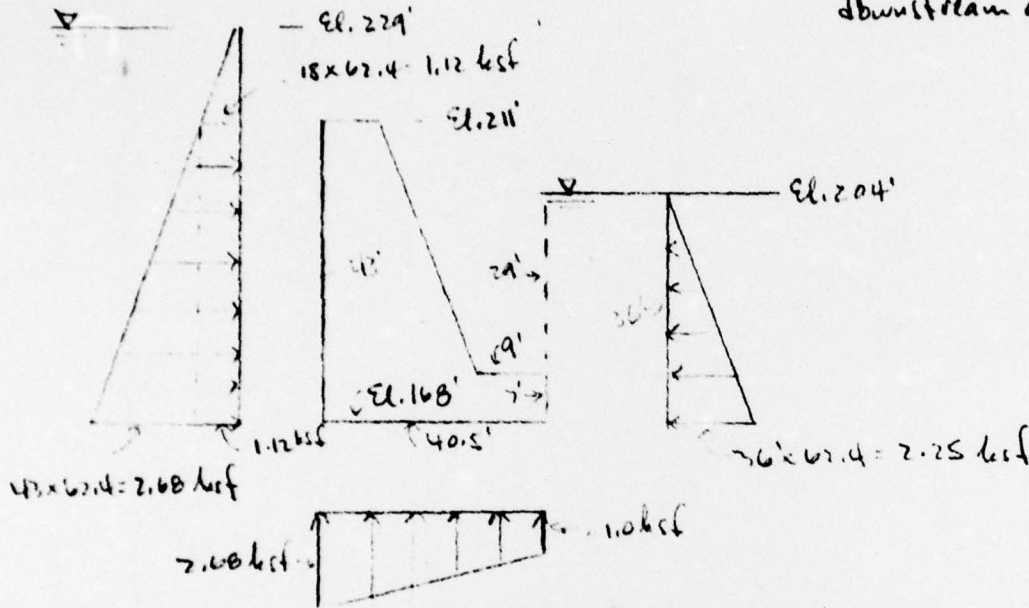 downstream
El. 229'
18 x 62.4 = 1.12 ksf
El. 211'
El. 204'
43'
29'
36'
9'
7'
El. 168'
1.12 ksf
40.5'
43 x 62.4 = 2.68 ksf
36' x 62.4 = 2.25 ksf
2.68 ksf
1.0 ksf